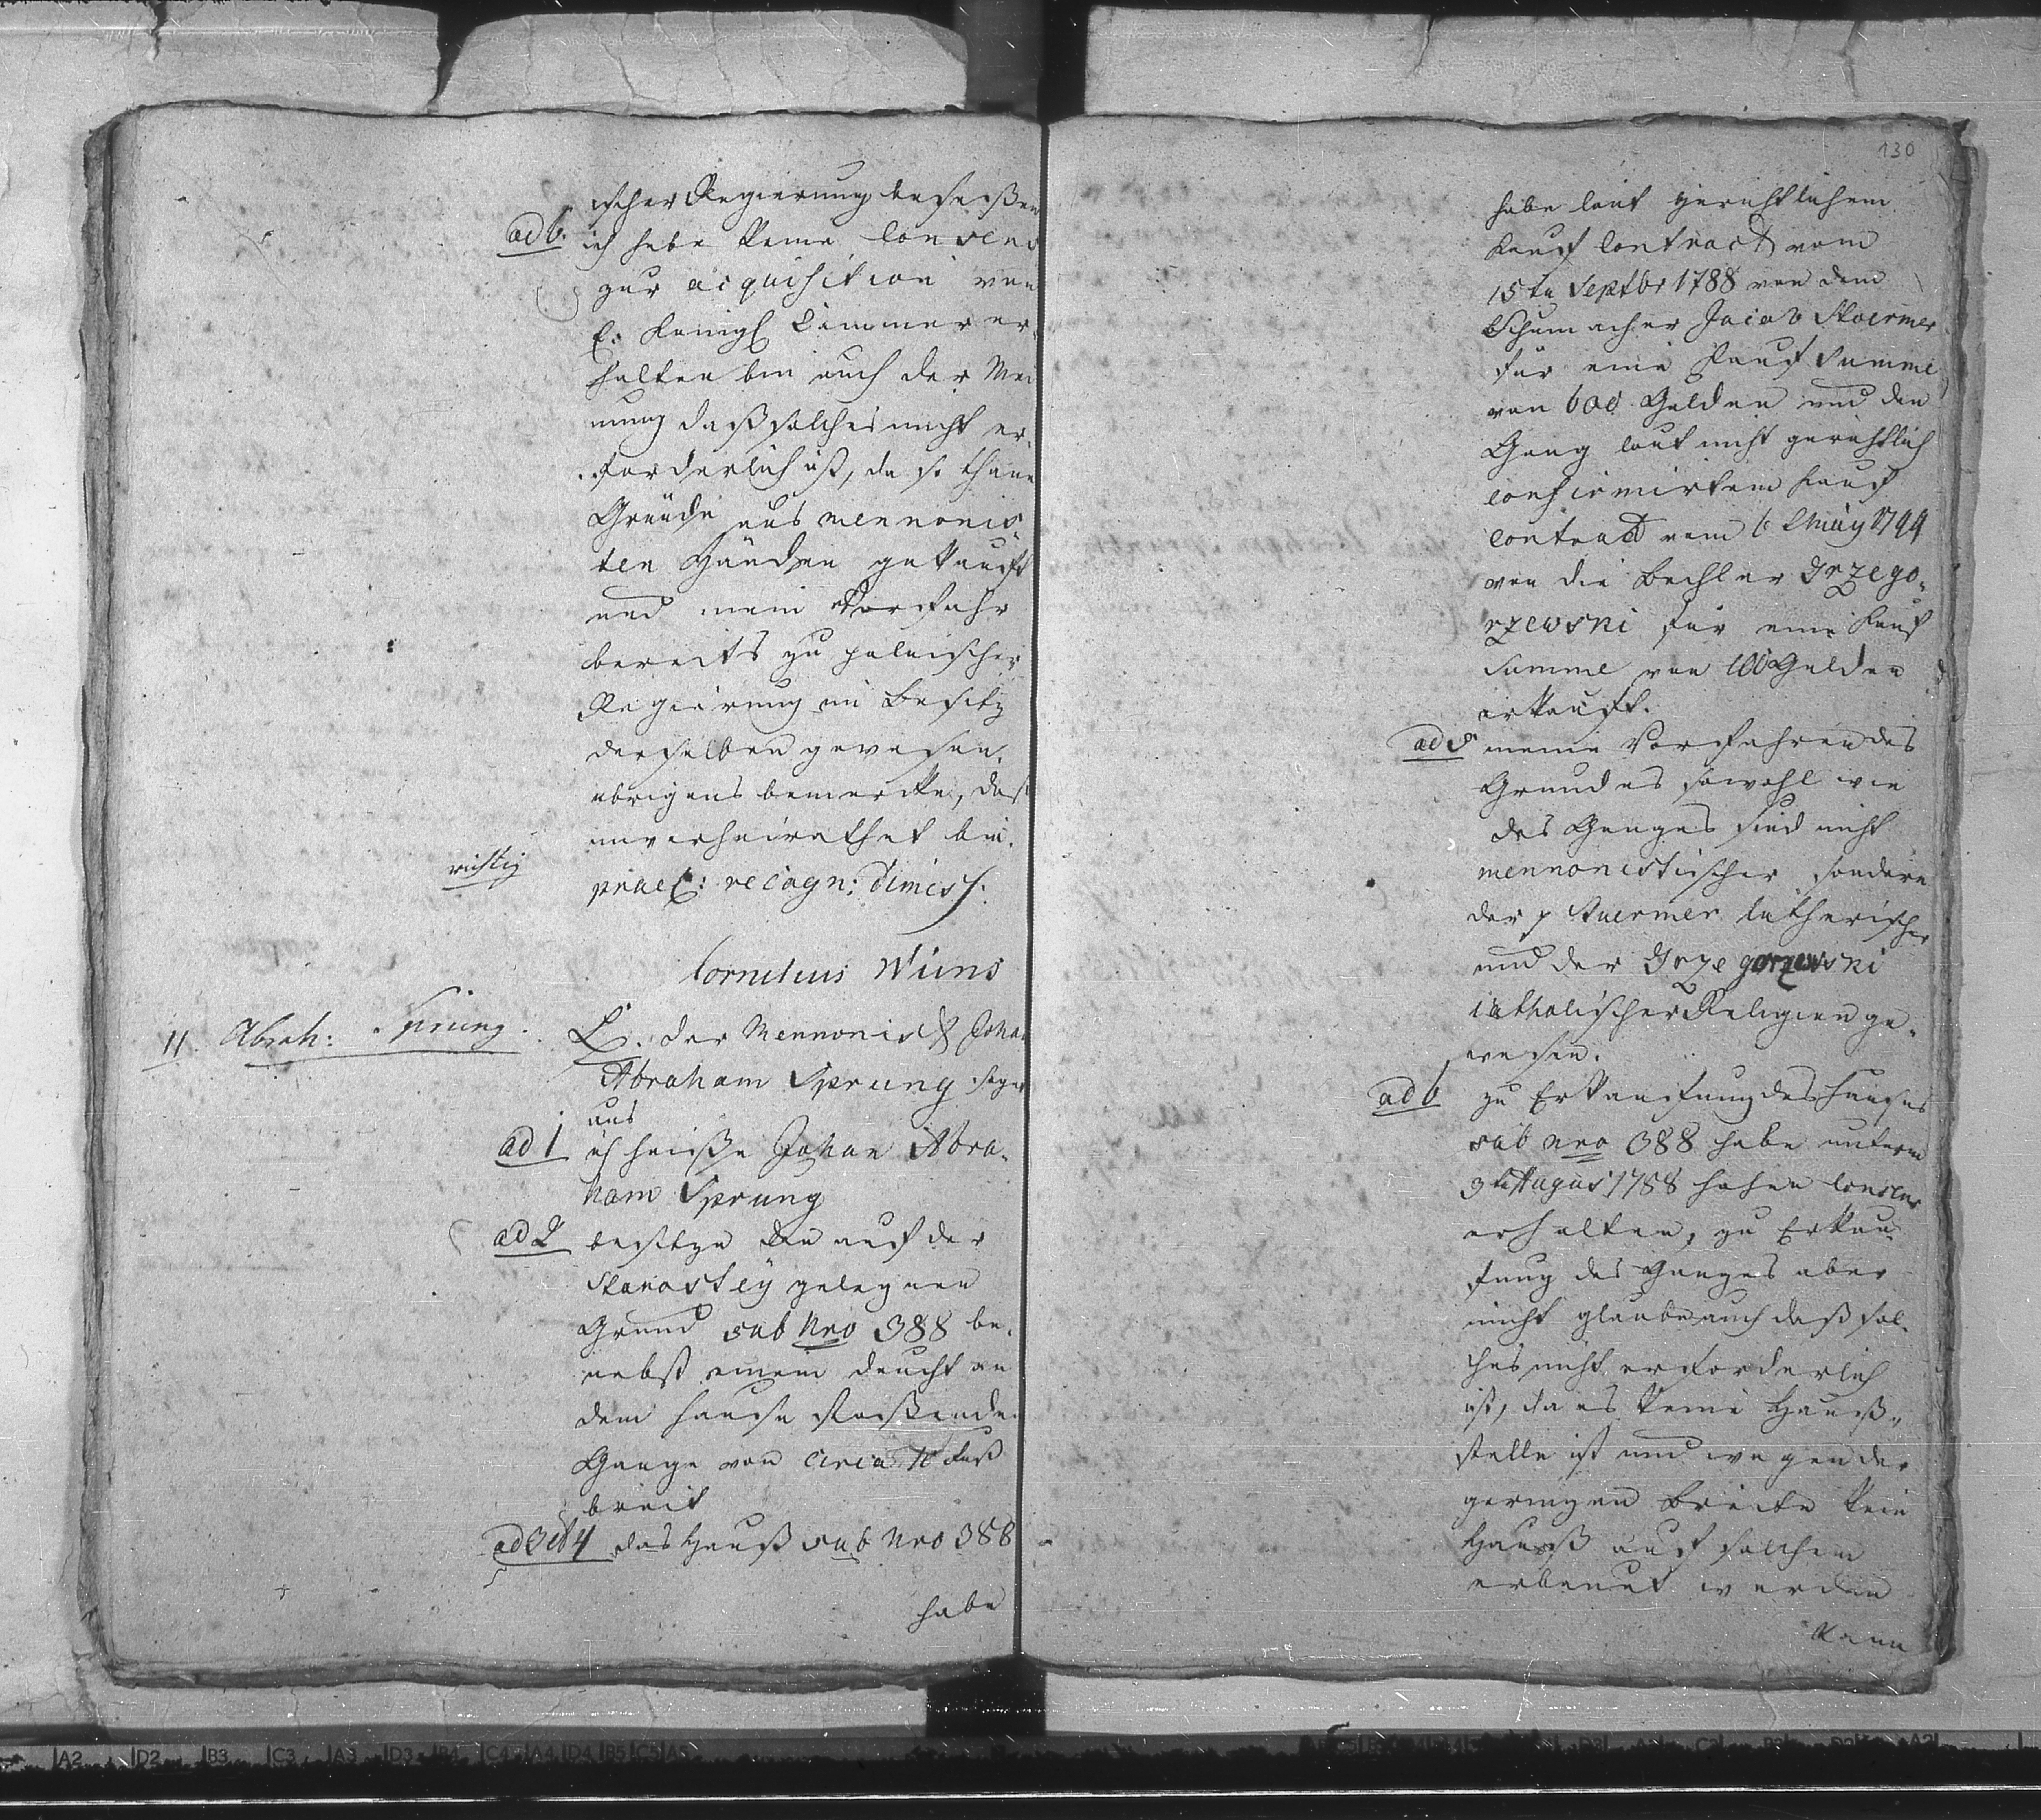 ischer Regierung besessen
ad 6. ich habe keine Consens
zur acquisition von
E. Königl Cammer er-
halten bin auch der Mei
nung daß solches nicht er-
forderlich ist, da so thane
Gründe aus mennonis
ten Händen gekauft
und mein Vorfahr
bereits zu polnischer
Regierung im Besitz
derselben gewesen.
übrigens bemercke, daß
unverheirathet bin.
richtig
prael: recogn: dimiss:
Cornelius Wiens
11. Abrah: Sprung.
E. der Mennonist Johan
Abraham Sprung sagt
aus
ad 1 ich heiße Johan Abra-
ham Sprung
ad 2 besitze den auf der
Starostey gelegnen
Grund sub Nro 388 be-
nebst einem deucht an
dem Hause stoßenden
Gange von circa 10 Fuß
breit
ad 3 et 4 das Hauß sub Nro 388
habe
130
habe laut gerichtlichem
Kauf Contract vom
15ten Septbr 1788 von dem
Schumacher Jacob Stoermer
für eine Kauf Summe
von 600 Gulden und den
Gang laut nicht gerichtlich
confirmirtem Kauf
Contract vom 6 May 1799
von die Bechler Grzego-
rzewski für eine Kauf
Summe von 100 Gulden
erkauft.
ad 5 meine Vorfahren des
Grundes sowohl wie
des Ganges sind nicht
mennonistischer sondern
der p Stuermer lutherischer
und der Grzegorzewski
catholischer Religion ge-
wesen.
ad 6 zu Erkaufung des Hauses
sub Nro 388 habe unterm
3ten Augus 1788 hohen Consens
erhalten, zu Erkau-
fung des Ganges aber
nicht glaube auch daß sol-
ches nicht erforderlich
ist, da es keine Hauß-
stelle ist und wegen der
geringen Breite kein
Hauß auf solchem
erbauet werden
kann